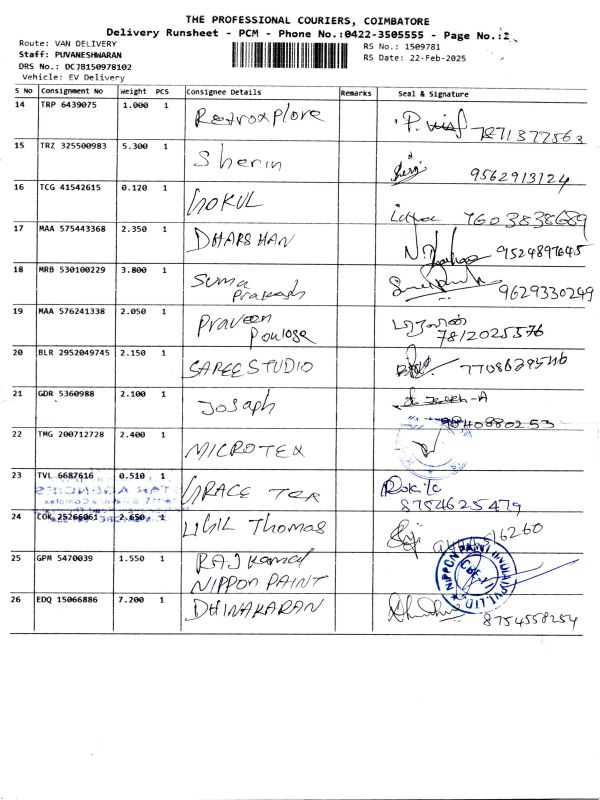 THE PROFESSIONAL COURIERS, COIMBATORE
Delivery Runsheet - PCM - Phone No.:0422-3505555 - Page No.:2
Route: VAN DELIVERY
Staff: PUVANESHWARAN
DRS No.: DCJB150978102
Vehicle: EV Delivery
RS No.: 1509781
RS Date: 22-Feb-2025
S No Consignment No Weight PCS Consignee Details Remarks Seal & Signature
14 TRP 6439075 1.000 1 Retroxplore
7871377563
15 TRZ 325500983 5.300 1 Sherin 9562913124
16 TCG 41542615 0.120 1 GOKUL 7603838689
17 MAA 575443368 2.350 1 DHARSHAN 9524897645
18 MRB 530100229 3.800 1 Suma
Prakash 9629330249
19 MAA 576241338 2.050 1 Praveen
Poulose 7812025576
20 BLR 2952049745 2.150 1 SAREE STUDIO
21 GDR 5360988 2.100 1 Josaph
9840880253
22 TMG 200712728 2.400 1 MICROTEX
23 TVL 6687616 0.510 1 GRACE TEX Rokila
8754625479
24 COK 25266061 2.650 1 Thomas
25 GPM 5470039 1.550 1 RAJ Kamal
NIPPON PAINT
NIPPON PAINT (INDIA) PVT. LTD.
26 EDQ 15066886 7.200 1 DHINAKARAN
8754558254